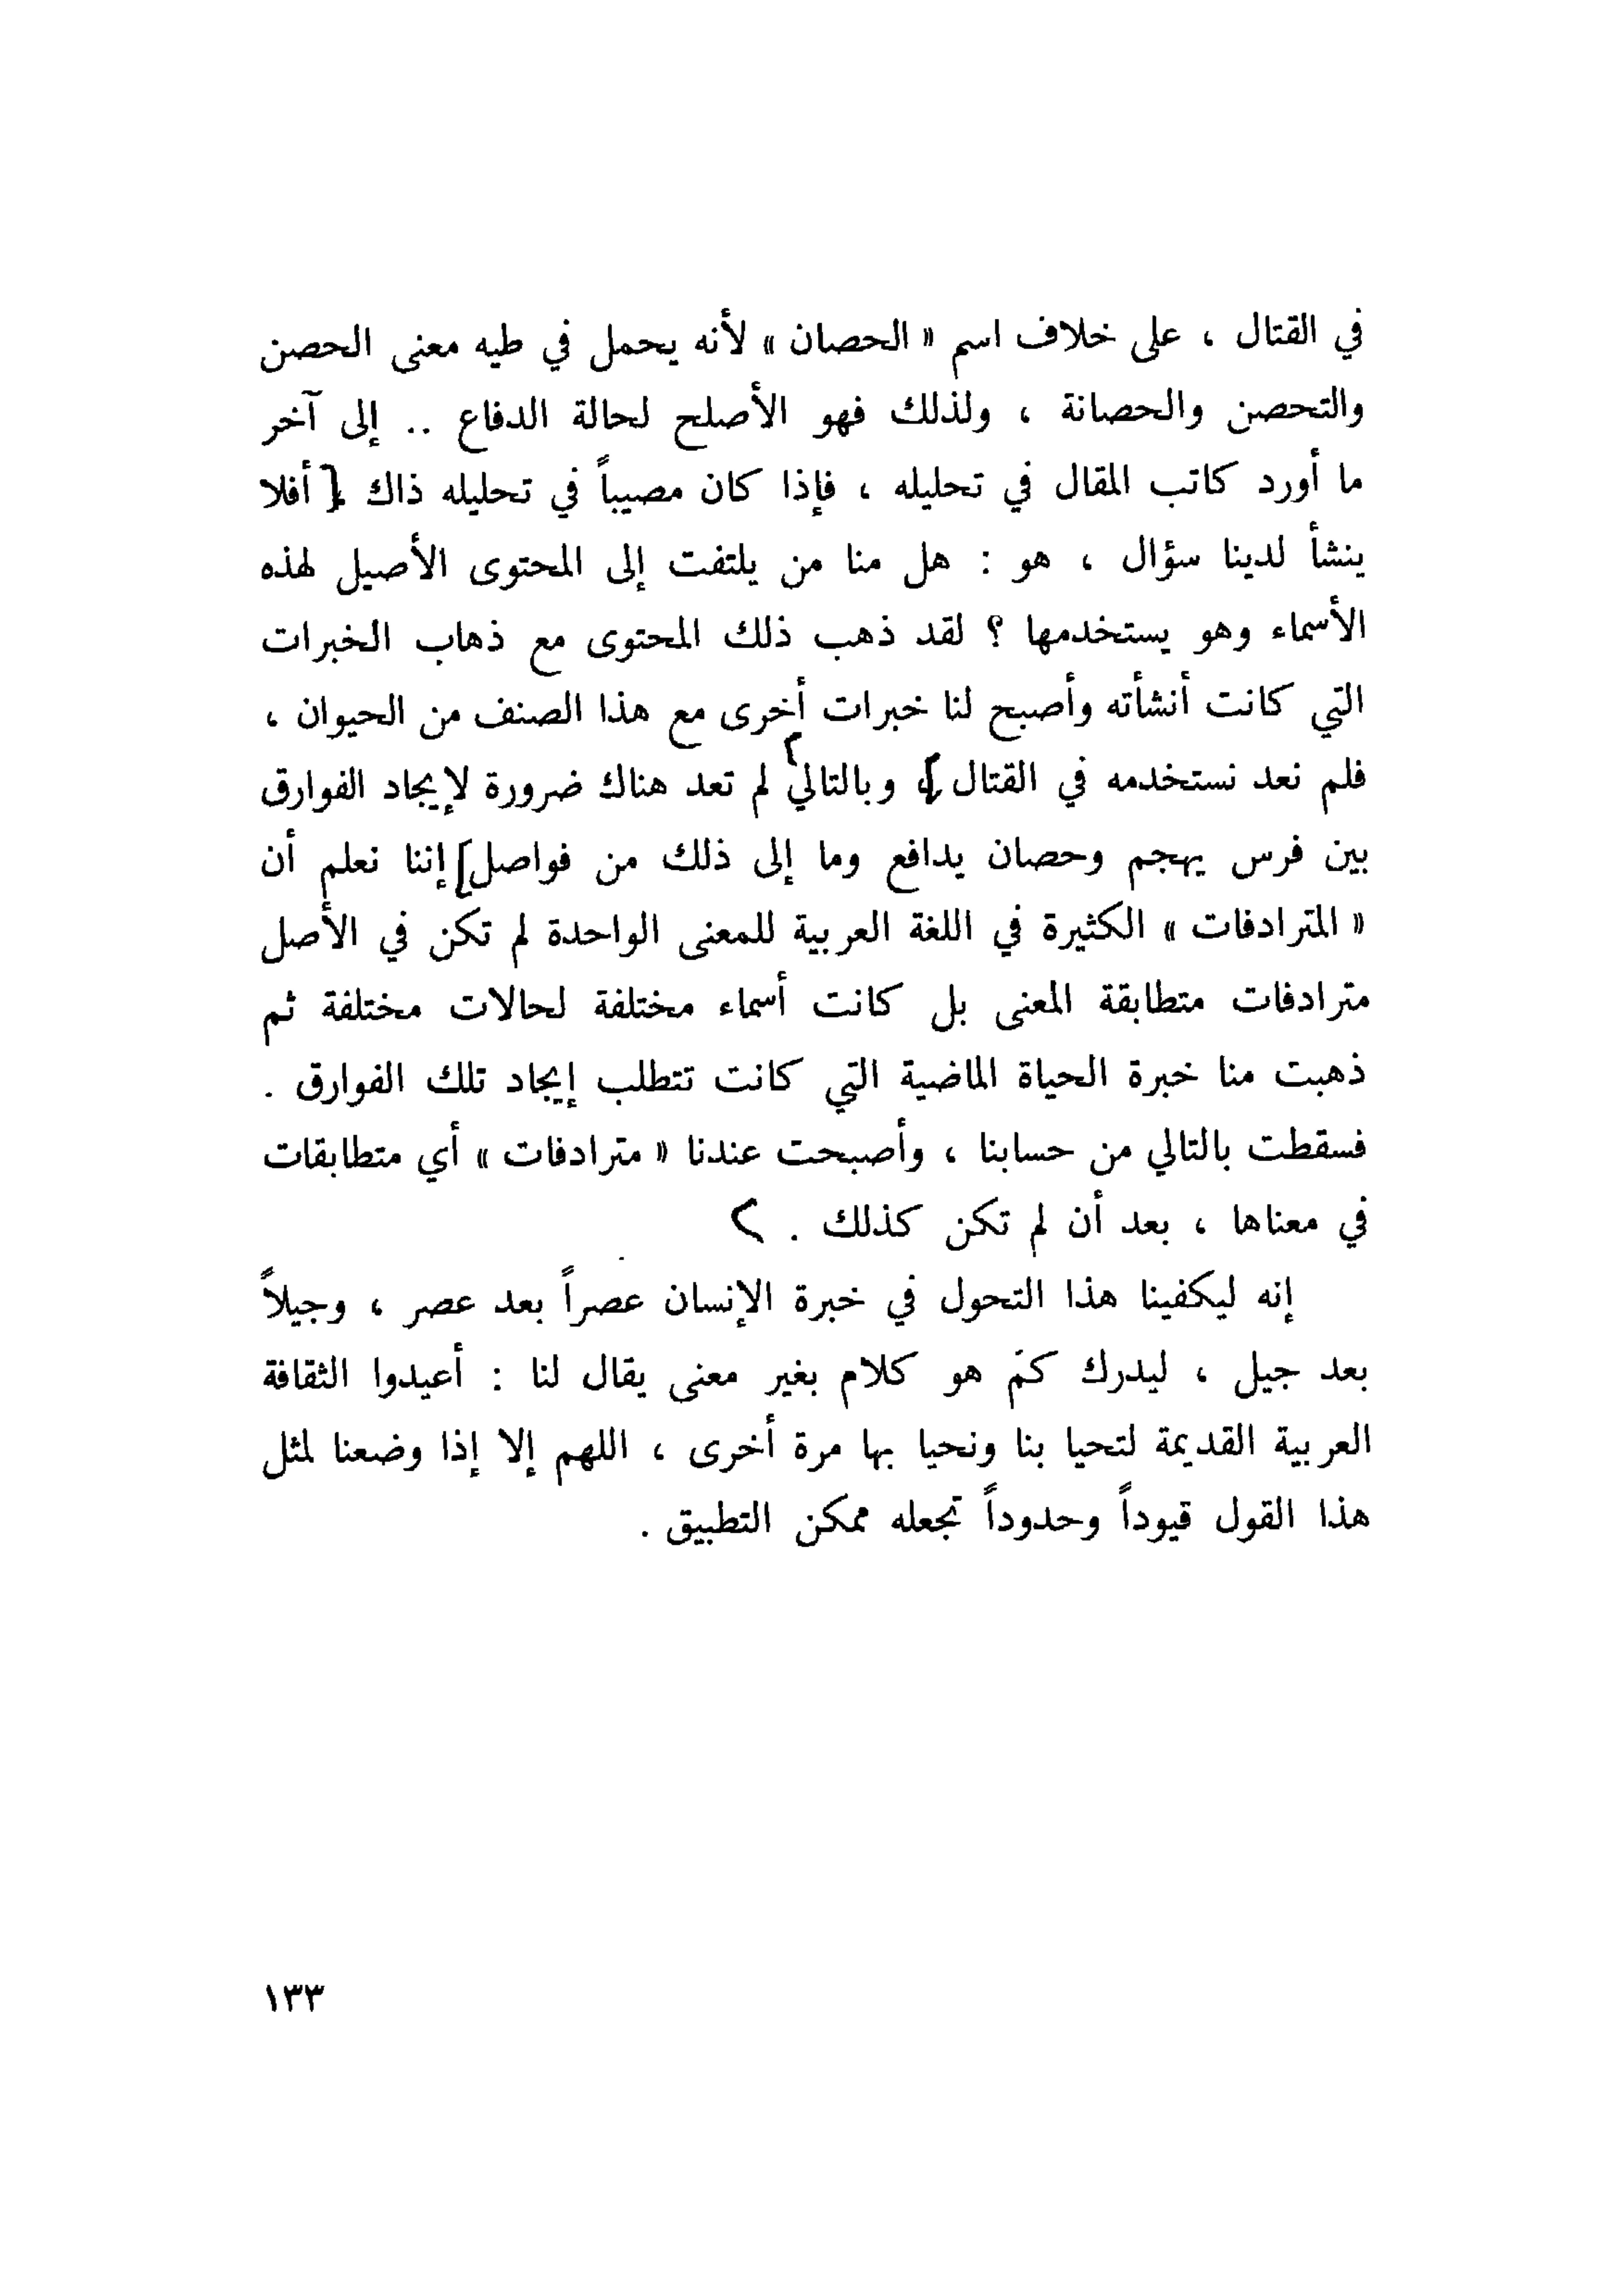 في القتال ، على خلاف اسم « الحصان » لأنه يحمل في طيه معنى الحصن
والتحصن والحصانة ، ولذلك فهو الأصلح لحالة الدفاع .. إلى آخر
ما أورد كاتب المقال في تحليله ، فإذا كان مصيباً في تحليله ذاك [ أفلا
ينشأ لدينا سؤال ، هو : هل منا من يلتفت إلى المحتوى الأصيل لهذه
الأسماء وهو يستخدمها ؟ لقد ذهب ذلك المحتوى مع ذهاب الخبرات
التي كانت أنشأته وأصبح لنا خبرات أخرى مع هذا الصنف من الحيوان ،
فلم نعد نستخدمه في القتال ]، وبالتالي لم تعد هناك ضرورة لإيجاد الفوارق
بين فرس يهجم وحصان يدافع وما إلى ذلك من فواصل] إننا نعلم أن
« المترادفات » الكثيرة في اللغة العربية للمعنى الواحدة لم تكن في الأصل
مترادفات متطابقة المعنى بل كانت أسماء مختلفة لحالات مختلفة ثم
ذهبت منا خبرة الحياة الماضية التي كانت تتطلب إيجاد تلك الفوارق .
فسقطت بالتالي من حسابنا ، وأصبحت عندنا « مترادفات » أي متطابقات
في معناها ، بعد أن لم تكن كذلك .
إنه ليكفينا هذا التحول في خبرة الإنسان عصراً بعد عصر ، وجيلاً
بعد جيل ، ليدرك كمَ هو كلام بغير معنى يقال لنا : أعيدوا الثقافة
العربية القديمة لتحيا بنا ونحيا بها مرة أخرى ، اللهم إلا إذا وضعنا لمثل
هذا القول قيوداً وحدوداً تجعله ممكن التطبيق .
١٣٣